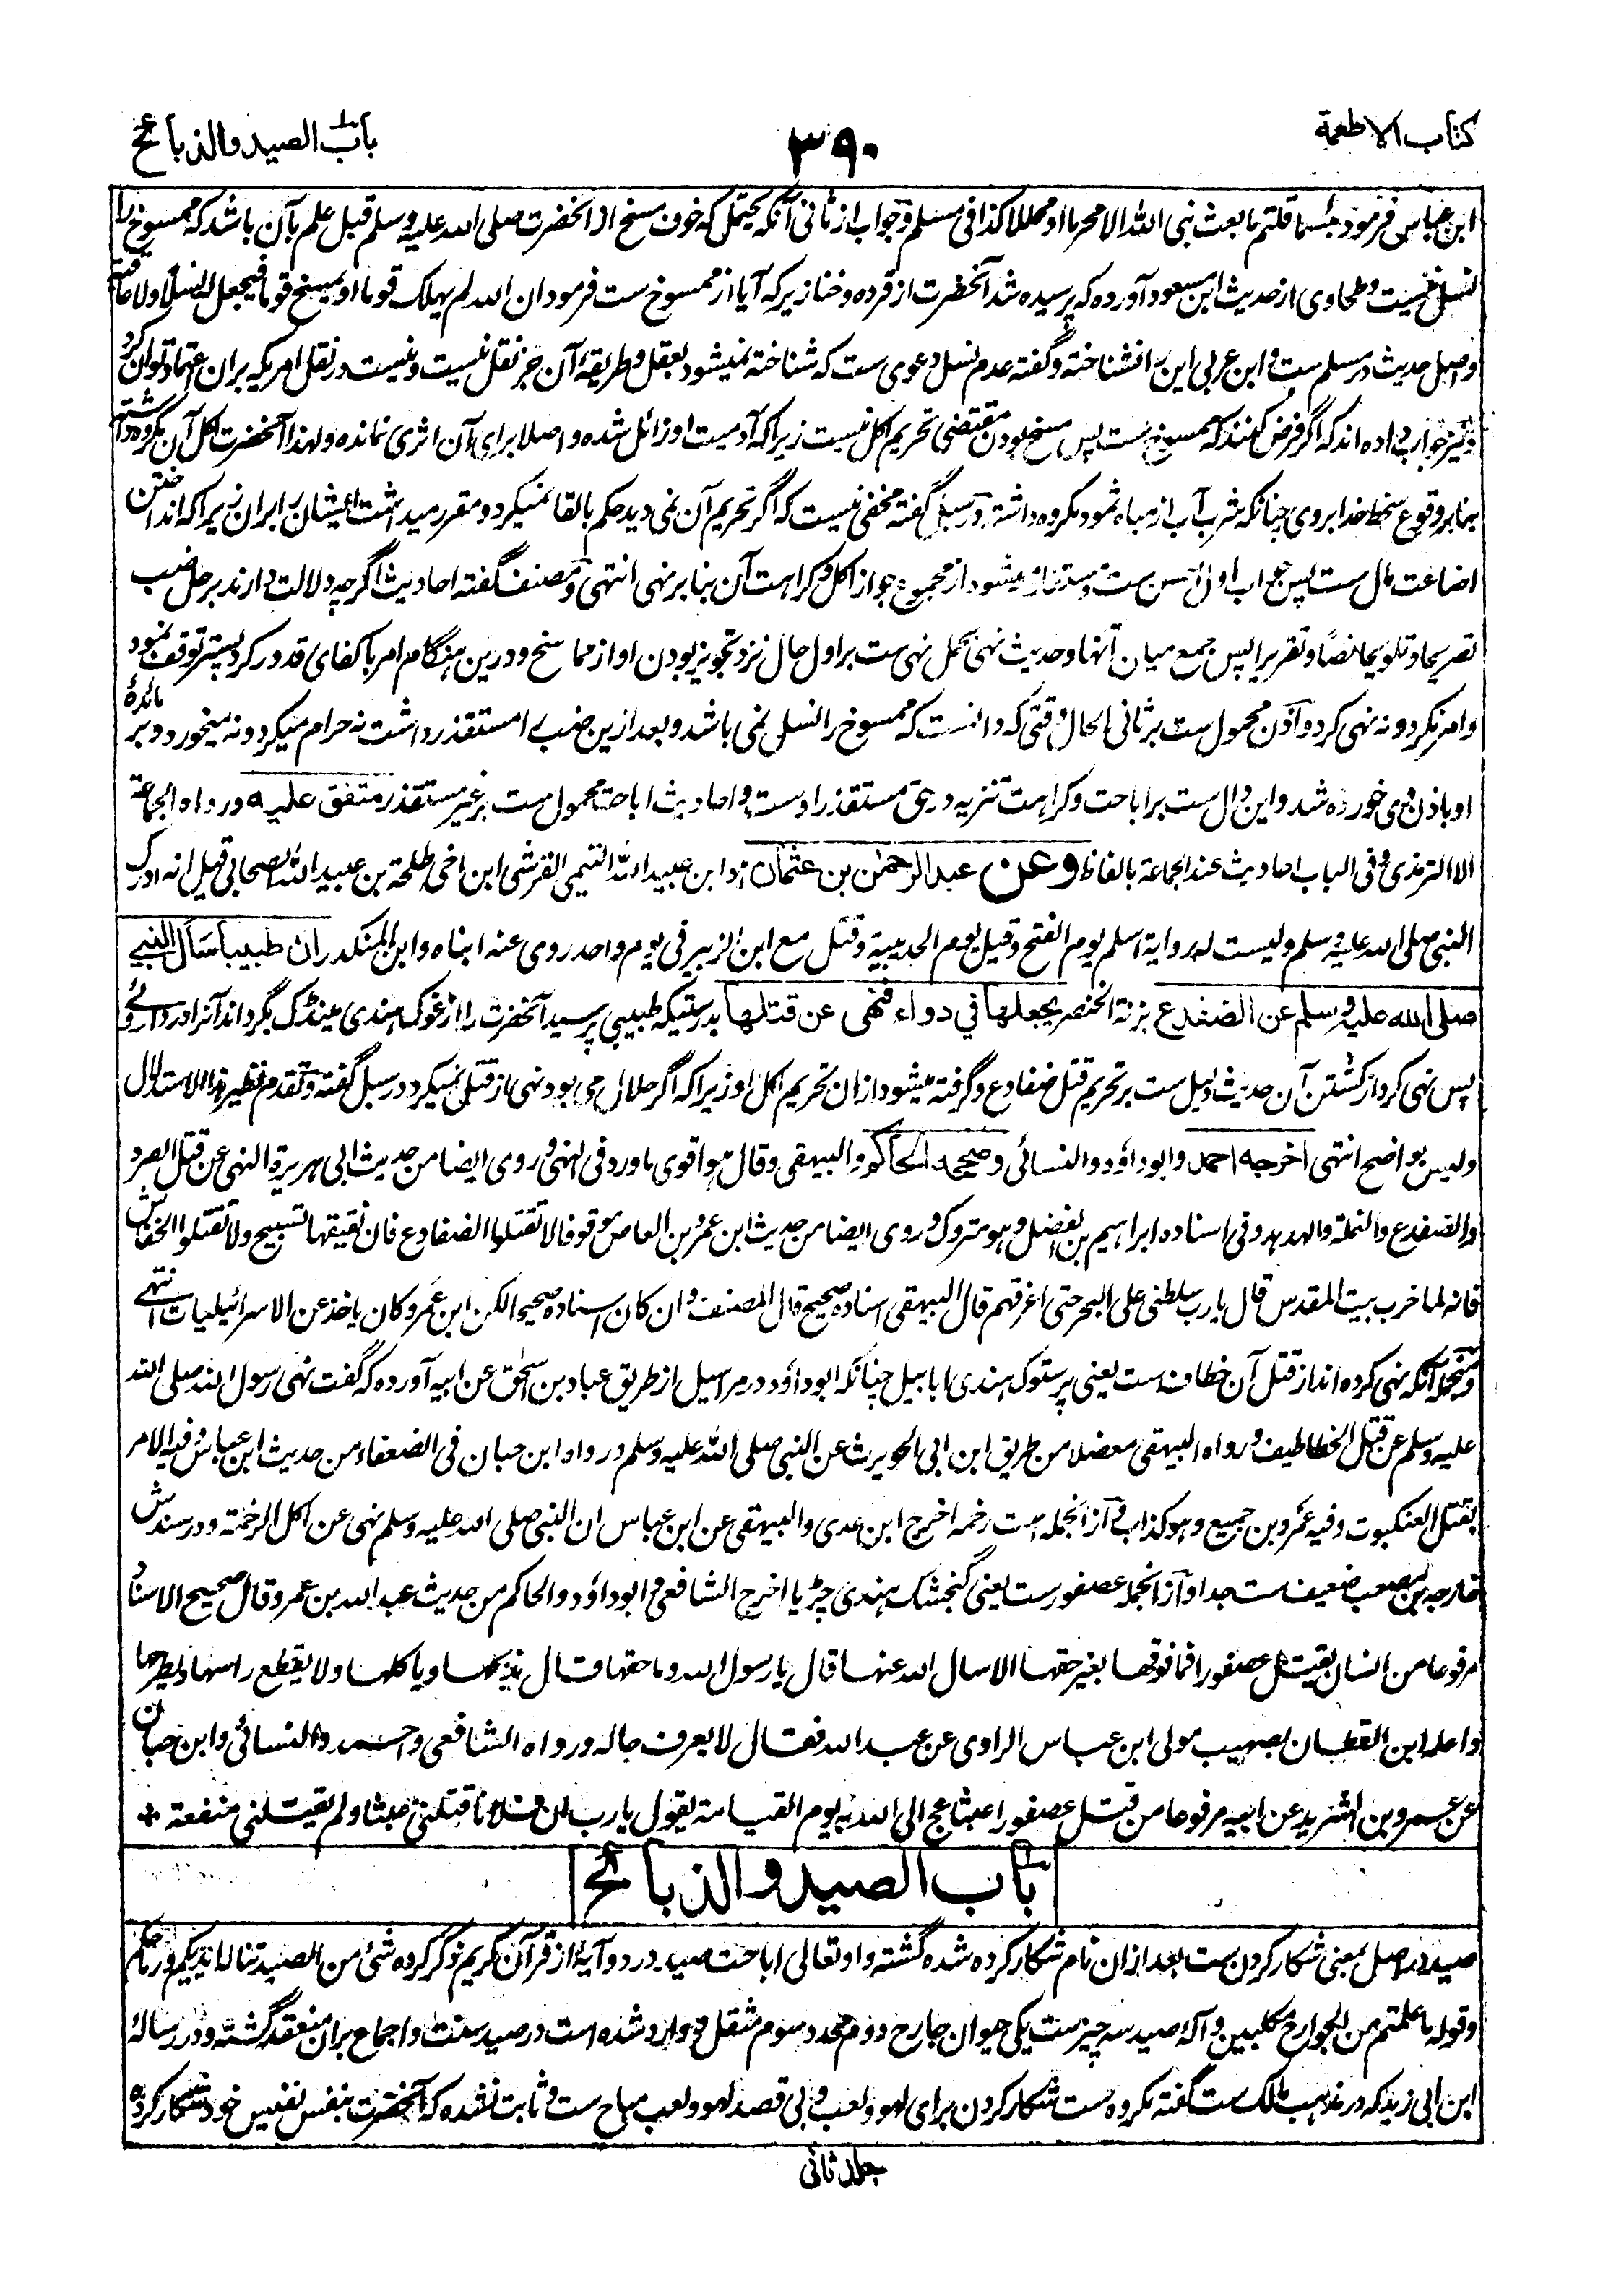 کتاب الاطعمة
۳۹۰
باب الصید والذبائح
ابن عباس فرمود بئسما قلتم ما بعث نبی الله الا محرما او محللا کذا فی مسلم و جواب از ثانی آنکه یحتمل که خوف مسخ از انحضرت صلی الله علیه وسلم قبل علم بآن باشد که ممسوخ را
نسل نیست و طحاوی از حدیث ابن مسعود آورده که پرسیده شد آنحضرت از قرده و خنازیر که آیا از ممسوخ ست فرمود ان الله لم یهلک قوما او یمسخ قوما فیجعل لهم نسلا ولا عاقبة
و اصل حدیث در مسلم ست و ابن عربی این را نشناخته و گفته عدم نسل دعوی ست که شناخته نمیشود بعقل و طریقۀ آن جز نقل نیست و نیست در نقل امریکه بران اعتماد توان کرد
و نیز جواب داده اند که اگر فرض کنند که ممسوخ ست پس مسخ بودن مقتضی تحریم اکل نیست زیرا که آدمیت او زائل شده و اصلا برای آن اثری نمانده ولهذا آنحضرت اکل آن مکروه داشته
بنابر وقوع سخط خدا بروی چنانکه شرب آب از میاه ثمود مکروه داشته و در سبل گفته مخفی نیست که اگر تحریم آن نمی دید حکم بالقا نمیکرد و مقرر میداشت ایشان را بران زیرا که انداختن
اضاعت مال ست پس جواب اول احسن ست و مستفاد میشود از مجموع جواز اکل و کراهت آن بنا بر نهی انتهی و مصنف گفته احادیث اگرچه دلالت دارند بر حل ضب
تصریحا و تلویحا نصًا و تقریرا پس جمع میان آنها و حدیث نهی بحمل نهی ست بر اول حال نزد تجویز بودن او از ما مسخ و درین هنگام امر باکفای قدور کرد پستر توقف نمود
و امر نکرد و نه نهی کرده و اذن محمول ست بر ثانی الحال وقتی که دانست که ممسوخ را نسل نمی باشد و بعد ازین ضب را مستقذر داشت نه حرام میکرد و نه میخورد و بر مائدۀ
او باذن وی خورده شد و این دال ست بر اباحت و کراهت تنزیه در حق مستقذر اوست و احادیث اباحت محمول ست بر غیر مستقذر متفق علیه و رواه الجماعة
الا الترمذی و فی الباب احادیث عند الجماعة بالفاظ وعن عبد الرحمن بن عثمان هو ابن عبید الله التیمی القرشی ابن اخی طلحة بن عبید الله الصحابی قیل انه ادرک
النبی صلی الله علیه وسلم ولیست له روایة اسلم یوم الفتح وقیل یوم الحدیبیة وقتل مع ابن الزبیر فی یوم واحد روی عنه ابناه وابن المنکدر ان طبیبا سأل النبی
صلی الله علیه وسلم عن الضفدع بزنة الخنصر یجعلها فی دواء فنهی عن قتلها بدرستیکه طبیبی پرسید آنحضرت را از غوک هندی مینڈک بگرداند آنرا در دوائے
پس نهی کرد از کشتن آن حدیث دلیل ست بر تحریم قتل ضفادع و گرفته میشود ازان تحریم اکل او زیرا که اگر حلال می بود نهی از قتل نمیکرد در سبل گفته و تقدم نظیر هذا الاستدلال
ولیس بواضح انتهی اخرجه احمد وابوداؤد والنسائی وصححه الحاکم والبیهقی وقال هو اقوی ما ورد فی النهی و روی ایضا من حدیث ابی هریرة النهی عن قتل الصرد
والضفدع والنملة والهدهد وفی اسناده ابراهیم بن الفضل وهو متروک و روی ایضا من حدیث ابن عمرو بن العاص موقوفا لا تقتلوا الضفادع فان نقیقها تسبیح ولا تقتلوا الخفاش
فانه لما خرب بیت المقدس قال یا رب سلطنی علی البحر حتی اغرقهم قال البیهقی اسناده صحیح قال المصنف وان کان اسناده صحیحا لکن ابن عمرو کان یاخذ عن الاسرائیلیات انتهی
و منجمله آنکه نهی کرده اند از قتل آن خطاف ست یعنی پرستوک هندی ابابیل چنانکه ابوداؤد در مراسیل از طریق عباد بن اسحٰق عن ابیه آورده که گفت نهی رسول الله صلی الله
علیه وسلم عن قتل الخطاطیف و رواه البیهقی معضلا من طریق ابن ابی الحویرث عن النبی صلی الله علیه وسلم و رواه ابن حبان فی الضعفاء من حدیث ابن عباس وفیه الامر
بقتل العنکبوت وفیه عمرو بن جمیع وهو کذاب و ازانجمله است رخمه اخرج ابن عدی والبیهقی عن ابن عباس ان النبی صلی الله علیه وسلم نهی عن اکل الرخمة و در سندش
خارجه بن مصعب ضعیف ست جدا و ازانجمله عصفور ست یعنی گنجشک هندی چڑیا اخرج الشافعی وابوداؤد والحاکم من حدیث عبد الله بن عمرو قال صحیح الاسناد
مرفوعا ما من انسان یقتل عصفورا فما فوقها بغیر حقها الا سال الله عنها قال یا رسول الله وما حقها قال یذبحها ویاکلها ولا یقطع راسها ویطرحها
واعله ابن القطان بصهیب مولی ابن عباس الراوی عن عبد الله فقال لا یعرف حاله و رواه الشافعی واحمد والنسائی وابن حبان
عن عمرو بن الشرید عن ابیه مرفوعا من قتل عصفورا عبثا عج الی الله به یوم القیامة یقول یا رب ان فلانا قتلنی عبثا ولم یقتلنی منفعة +
باب الصید والذبائح
صید در اصل بمعنی شکار کردن ست بعد ازان نام شکار کرده شده گشته و او تعالی اباحت صید در دو آیۀ از قرآن کریم ذکر کرده شئ من الصید تناله ایدیکم ورماحکم
وقوله ما علمتم من الجوارح مکلبین و آلۀ صید سه چیز ست یکی حیوان جارح دوم محدد سوم مثقل و وارد شده است در صید سنت و اجماع بران منعقد گشته و در رسالۀ
ابن ابی زید که در مذهب مالک ست گفته مکروه ست شکار کردن برای لهو و لعب و بی قصد لهو و لعب مباح ست و ثابت نشده که آنحضرت بنفس نفیس خود شکار کرده
جلد ثانی